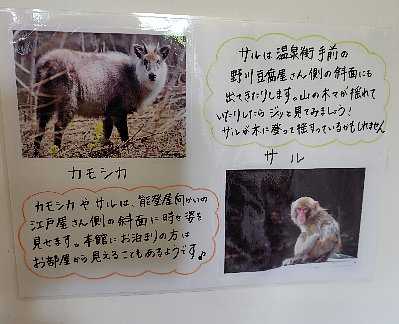 サルは温泉街手前の
野川豆腐屋さん側の斜面にも
出てきたりします。山の木々が揺れて
いたりしたらジッと見てみましょう!
サルが木に登って揺すっているかもしれません
カモシカ
サル
カモシカやサルは、能登屋向かいの
江戸屋さん側の斜面に時々姿を
見せます。本館にお泊まりの方は
お部屋から見えることもあるようです♪